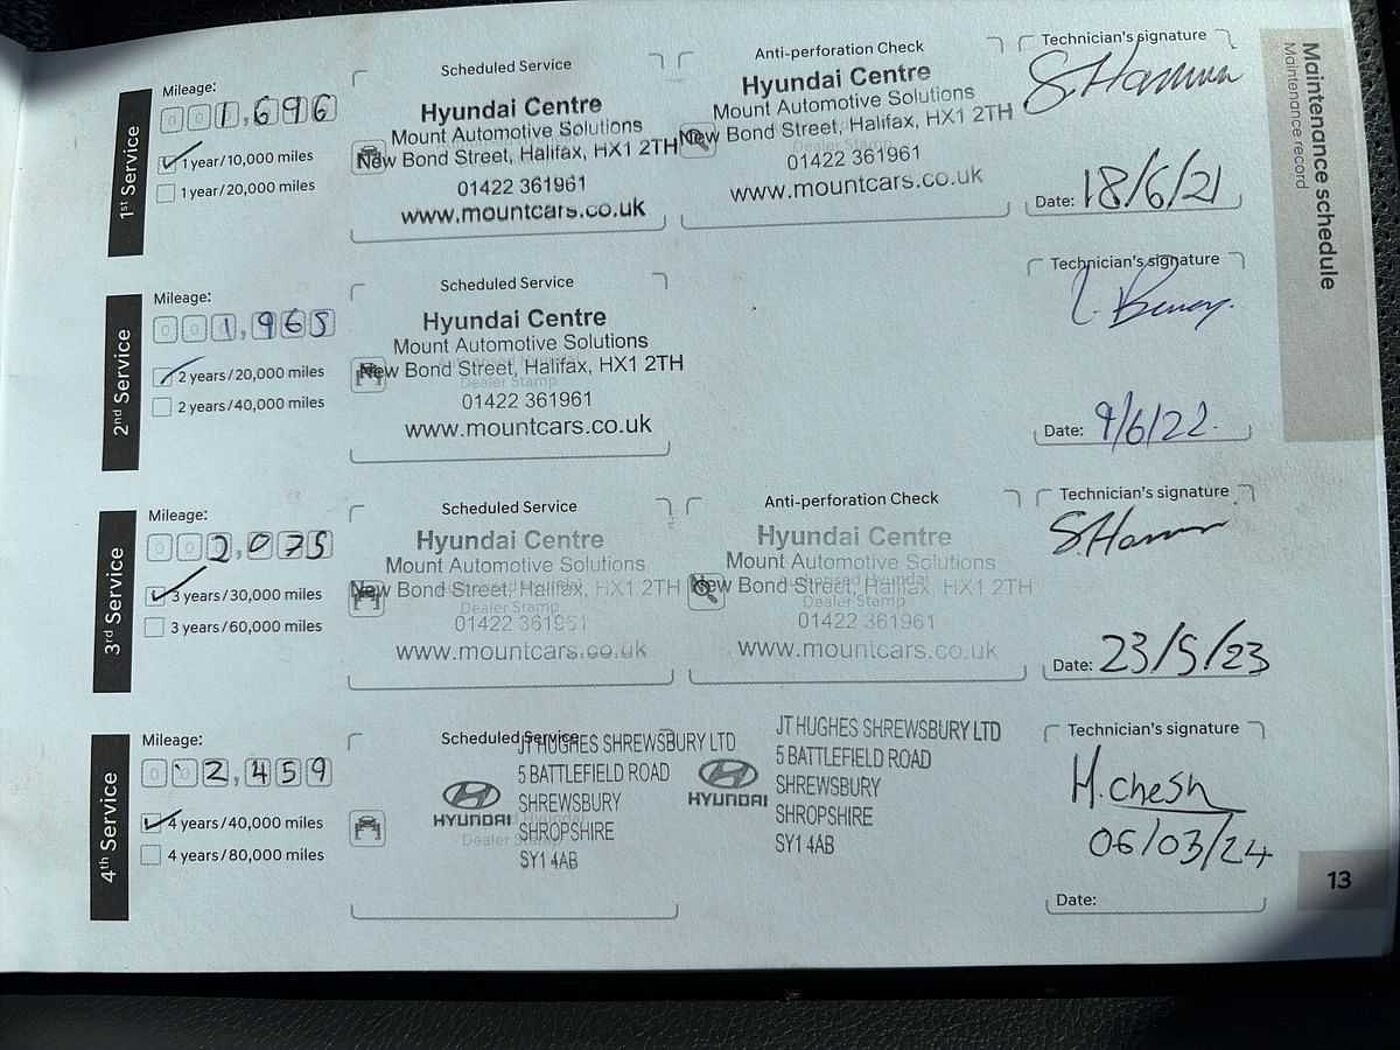 Maintenance schedule
Maintenance record
1st Service
Mileage:
001,696
1 year/10,000 miles
1 year/20,000 miles
Scheduled Service
Hyundai Centre
Mount Automotive Solutions
New Bond Street, Halifax, HX1 2TH
01422 361961
www.mountcars.co.uk
Anti-perforation Check
Hyundai Centre
Mount Automotive Solutions
New Bond Street, Halifax, HX1 2TH
01422 361961
www.mountcars.co.uk
Technician's signature
Date: 18/6/21
2nd Service
Mileage:
001,965
2 years/20,000 miles
2 years/40,000 miles
Scheduled Service
Hyundai Centre
Mount Automotive Solutions
New Bond Street, Halifax, HX1 2TH
Dealer Stamp
01422 361961
www.mountcars.co.uk
Technician's signature
Date: 9/6/22.
3rd Service
Mileage:
002,075
3 years/30,000 miles
3 years/60,000 miles
Scheduled Service
Hyundai Centre
Mount Automotive Solutions
New Bond Street, Halifax, HX1 2TH
Dealer Stamp
01422 361961
www.mountcars.co.uk
Anti-perforation Check
Hyundai Centre
Mount Automotive Solutions
New Bond Street, Halifax, HX1 2TH
Dealer Stamp
01422 361961
www.mountcars.co.uk
Technician's signature
Date: 23/5/23
4th Service
Mileage:
002,459
4 years/40,000 miles
4 years/80,000 miles
Scheduled Service
JT HUGHES SHREWSBURY LTD
5 BATTLEFIELD ROAD
SHREWSBURY
HYUNDAI
SHROPSHIRE
Dealer Stamp
SY1 4AB
JT HUGHES SHREWSBURY LTD
5 BATTLEFIELD ROAD
SHREWSBURY
HYUNDAI
SHROPSHIRE
SY1 4AB
Technician's signature
H.Chesh
06/03/24
Date:
13